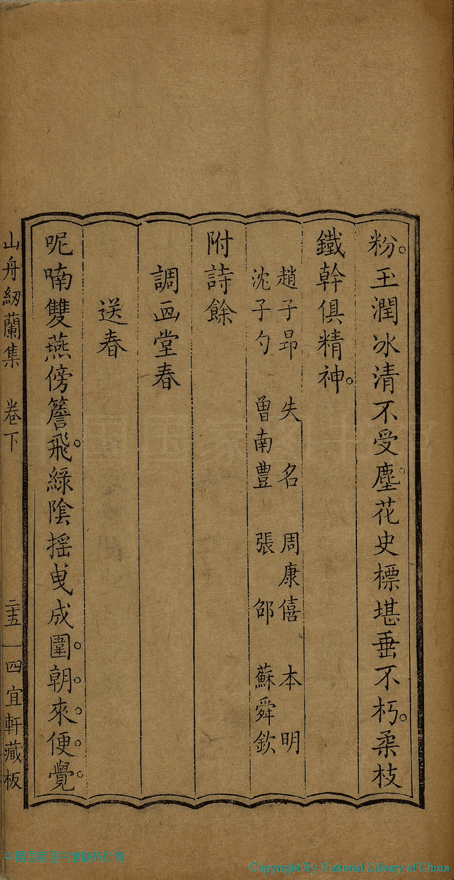 粉玉潤冰清不受塵。花史標堪垂不朽。柔枝
鐵幹俱精神。
趙子昂　失名　周康僖　本明
沈子勺　曾南豊　張邵　蘇舜欽
附詩餘
調画堂春
送春
呢喃雙燕傍簷飛。綠陰搖曳成圍。朝來便覺
山舟紉蘭集　卷下　二十五　四宜軒藏板
Copyright By National Library of China